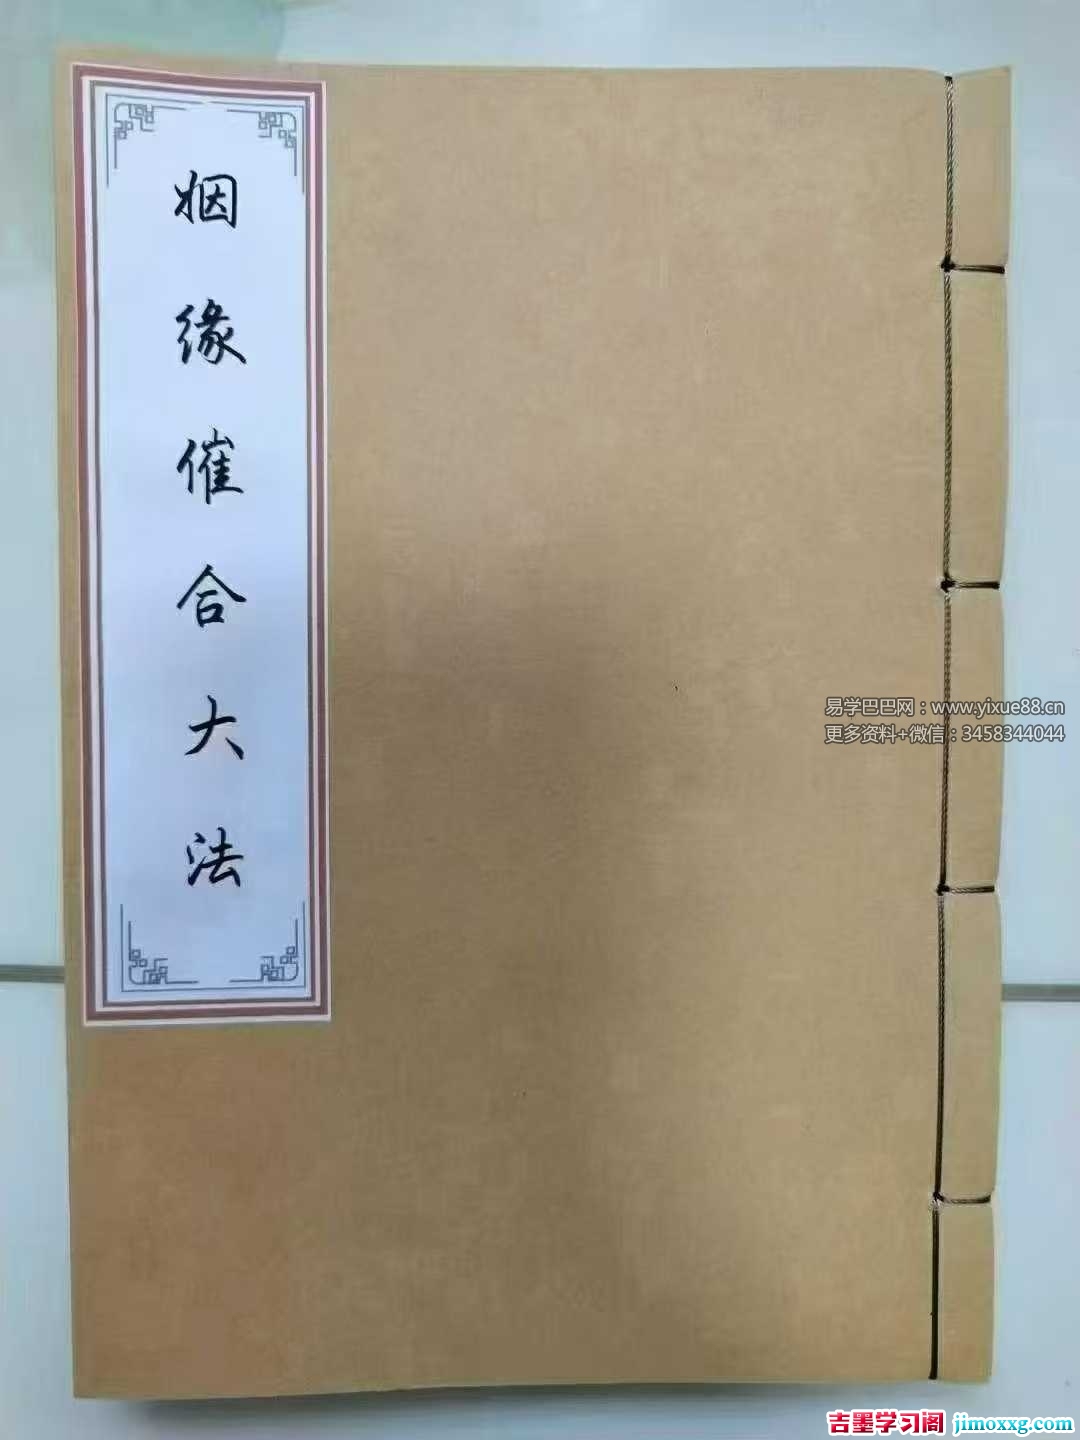 姻缘催合大法
易学巴巴网：www.yixue88.cn
更多资料+微信：3458344044
吉墨学习阁 jimoxxg.com